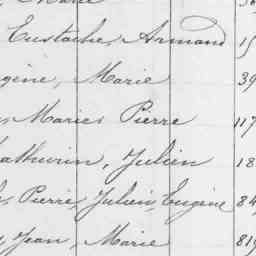 Marie
Eustache, Armand 15
gène, Marie 39
Marie Pierre 117
Mathurin, Julien 18
Pierre, Julien, Eugène 84
Jean, Marie 819